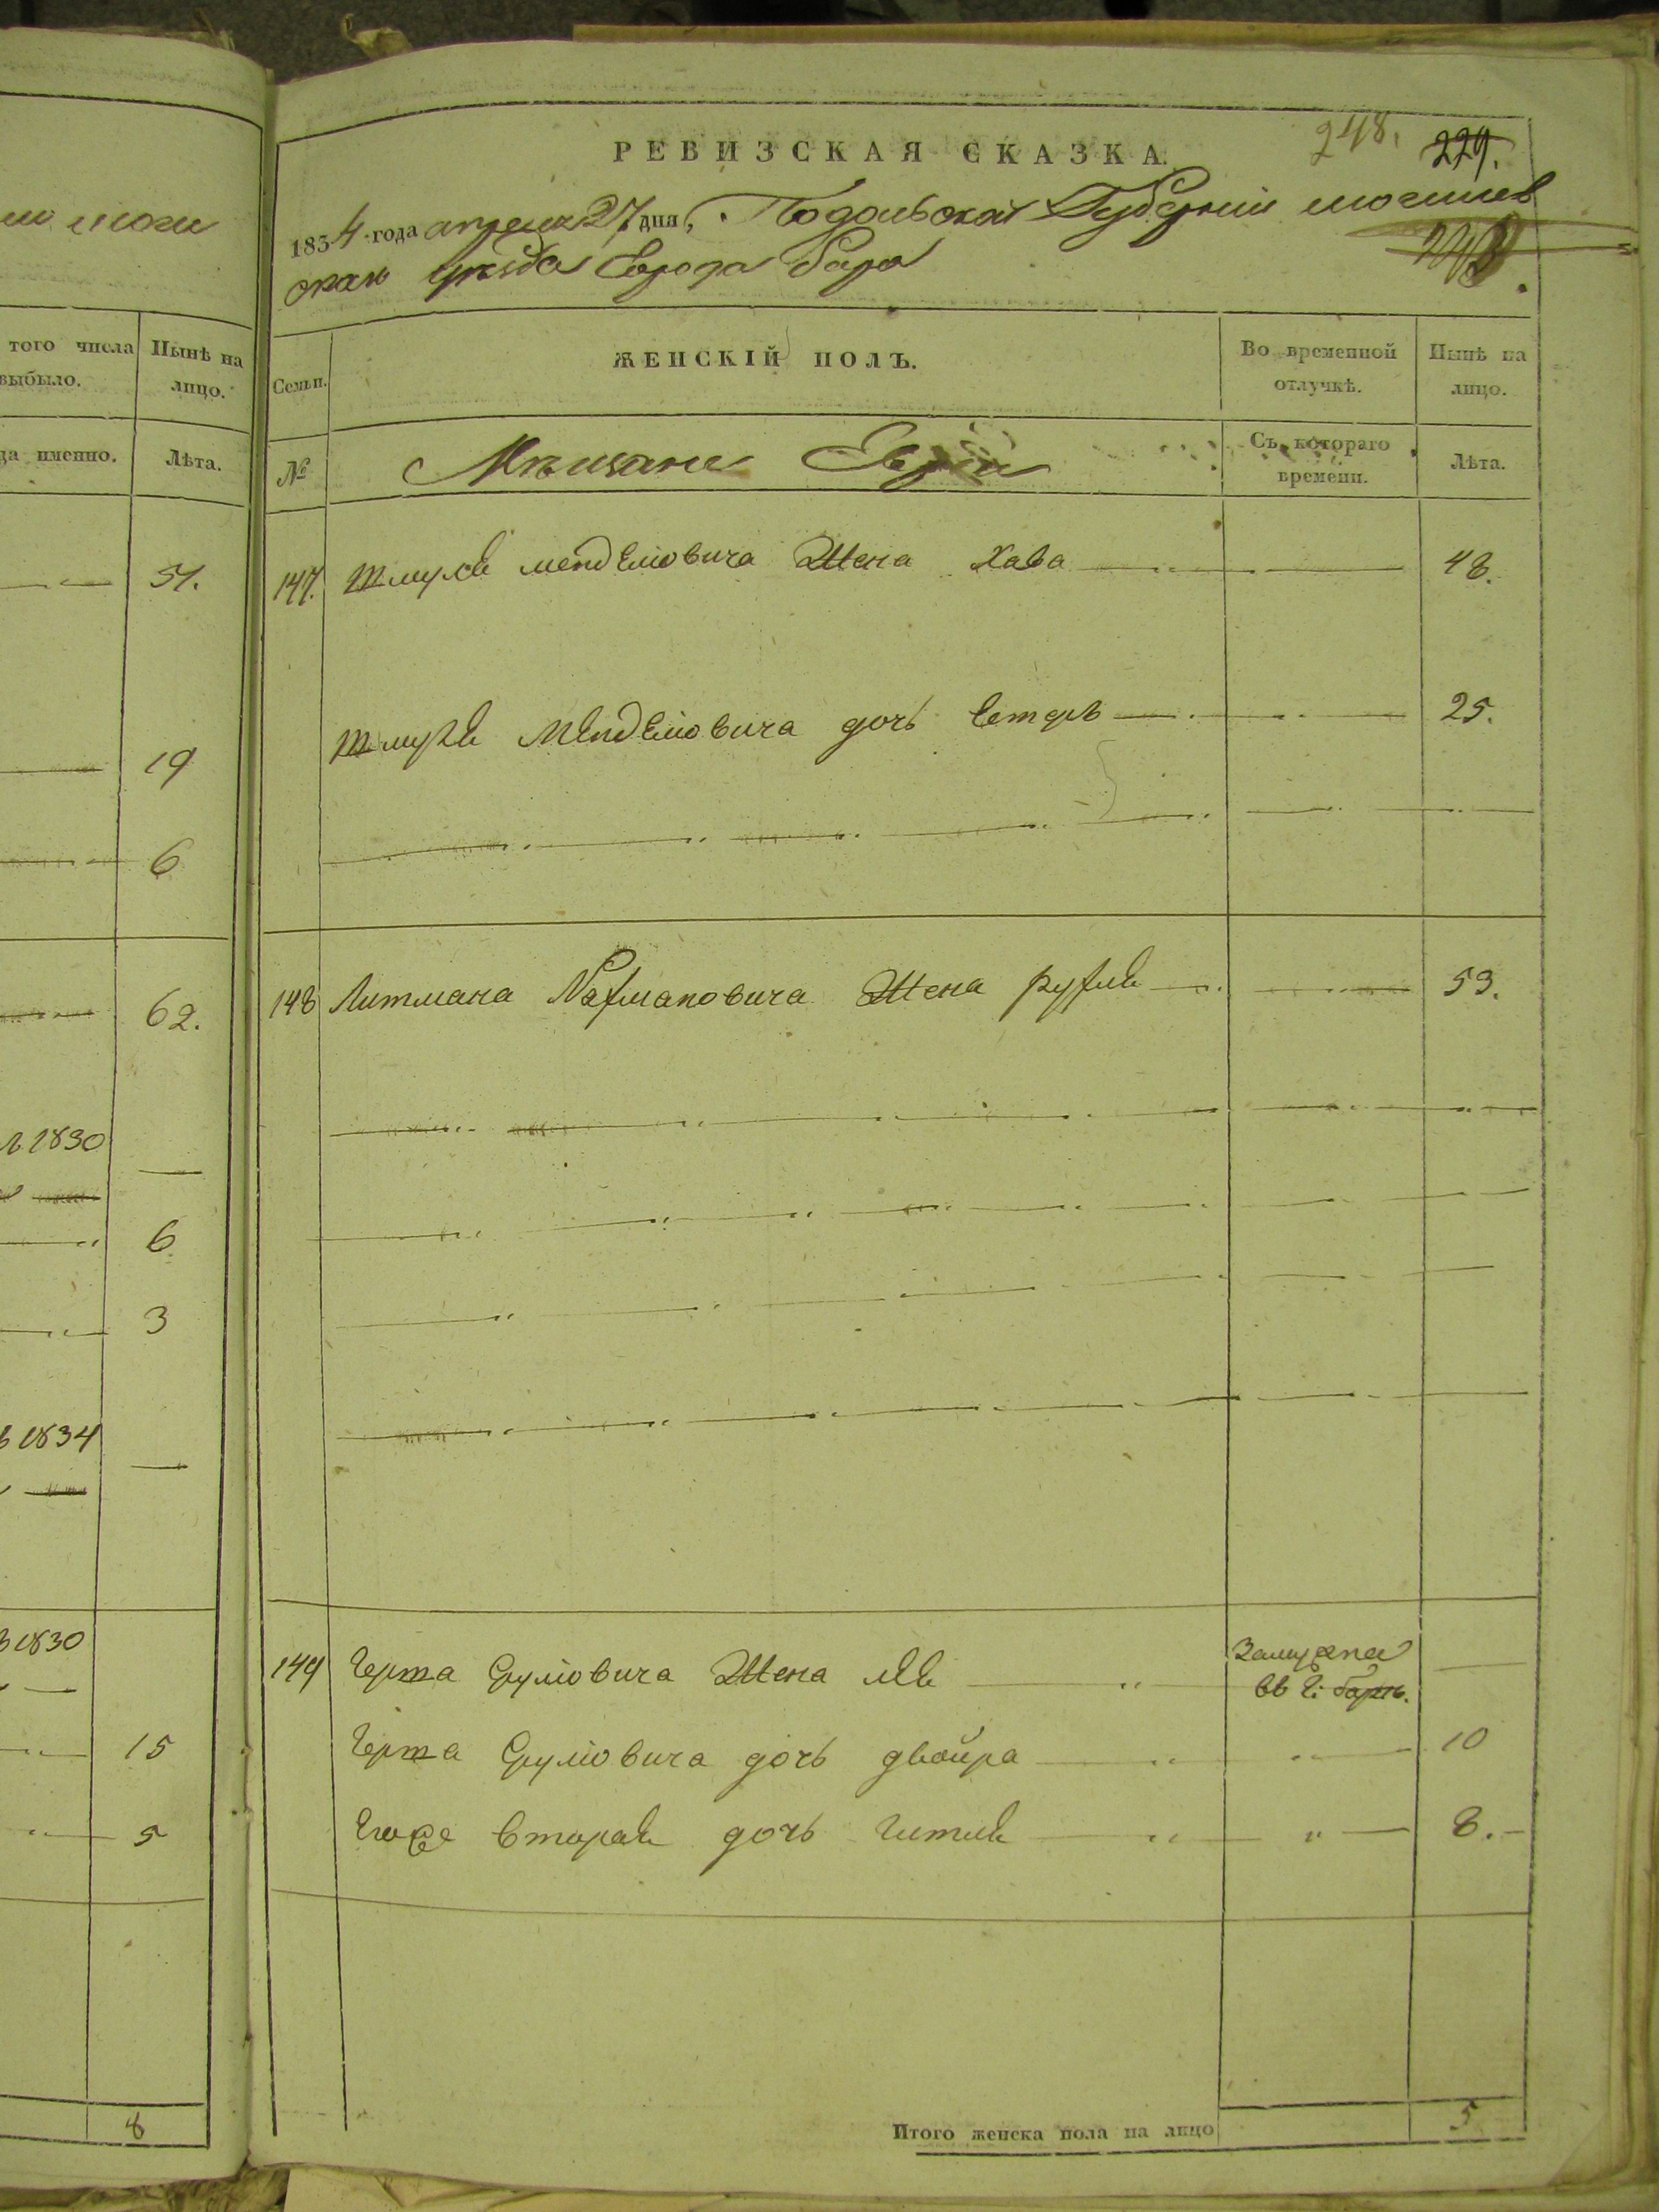 РЕВИЗСКАЯ СКАЗКА.
248. 229.
1834 года апреля 27 дня, Подольской Губерніи могилев
скаго уезда Города бара
того числа
выбыло.
Нынѣ на
лицо.
да именно.
Лѣта.
51.
19
6
62.
1830
6
3
1834
1830
15
5
8
Семьи.
ЖЕНСКІЙ ПОЛЪ.
Во временной
отлучкѣ.
Нынѣ на
лицо.
№
Мѣщане Евреи
Съ котораго
времени.
Лѣта.
147. Шмуля мендемовича Жена Хава 48.
Шмуля Мендемовича дочь Естеръ 25.
148 Литмана Нахмановича Жена рухля 53.
149 Герша Срулiовича Жена Замужна
въ г: барѣ.
Герша Срулiовича дочь двойра 10
Егоже вторая дочь Гитля 8.
Итого женска пола на лицо 5